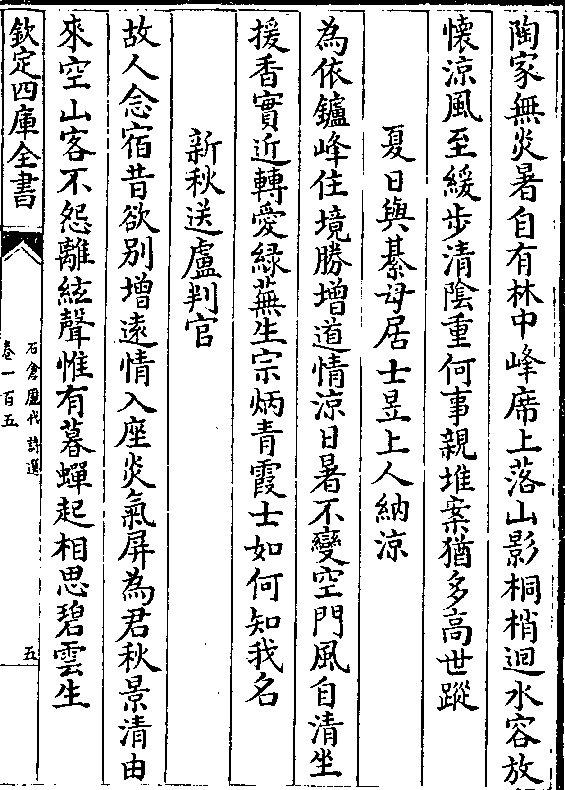 陶家無炎暑自有林中峰席上落山影桐梢迴水容放
懐涼風至緩步清陰重何事親堆案猶多高世蹤
夏日與綦母居士昱上人納涼
為依鑪峰住境勝增道情涼日暑不變空門風自清坐
援香實近轉愛緑蕪生宗炳青霞士如何知我名
新秋送盧判官
故人念宿昔欲别增遠情入座炎氣屏為君秋景清由
來空山客不怨離絃聲惟有暮蟬起相思碧雲生
欽定四庫全書
石倉歴代詩選
卷一百五
五